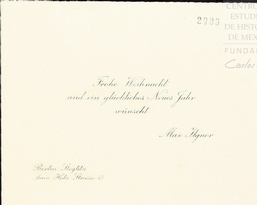 2909
CENTRO
ESTUD
DE HISTO
DE MEX
FUNDA
Carlos
Frohe Weihnacht
und ein glückliches Neues Jahr
wünscht
Max
Berlin Steglitz